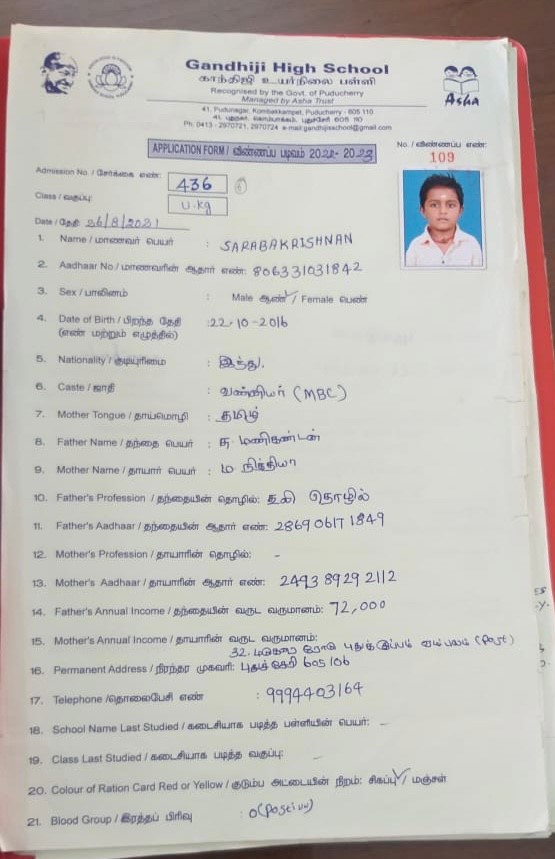 Gandhiji High School
காந்திஜி உயர்நிலை பள்ளி
Recognised by the Govt. of Puducherry
Managed by Asha Trust
Asha
41, Pudunagar, Kombakkampet, Puducherry - 605 110
Ph: 0413 - 2970721, 2970724 e-mail:gandhijisschool@gmail.com
APPLICATION FORM / விண்ணப்ப படிவம் 2022- 2023
No. / விண்ணப்ப எண்:
109
Admission No. / சேர்க்கை எண்: 436
Class / வகுப்பு: U.kg
Date / தேதி: 26/8/2021
1. Name / மாணவர் பெயர் : SARABAKRISHNAN
2. Aadhaar No./ மாணவரின் ஆதார் எண்: 806331031842
3. Sex / பாலினம் : Male ஆண் / Female பெண்
4. Date of Birth / பிறந்த தேதி : 22-10-2016
(எண் மற்றும் எழுத்தில்)
5. Nationality / குடியுரிமை : இந்து.
6. Caste / ஜாதி : வன்னியர் (MBC)
7. Mother Tongue / தாய்மொழி : தமிழ்
8. Father Name / தந்தை பெயர் : த. மணிகண்டன்
9. Mother Name / தாயார் பெயர் : ம நித்தியா
10. Father's Profession / தந்தையின் தொழில்: தொழில்
11. Father's Aadhaar / தந்தையின் ஆதார் எண்: 2869 0617 1849
12. Mother's Profession / தாயாரின் தொழில்: -
13. Mother's Aadhaar / தாயாரின் ஆதார் எண்: 2493 8929 2112
14. Father's Annual Income / தந்தையின் வருட வருமானம்: 72,000
15. Mother's Annual Income / தாயாரின் வருட வருமானம்:
32, ரோடு புதுக்குப்பம் (Post)
16. Permanent Address / நிரந்தர முகவரி: புதுச்சேரி 605106
17. Telephone /தொலைபேசி எண் : 9994403164
18. School Name Last Studied / கடைசியாக படித்த பள்ளியின் பெயர்: -
19. Class Last Studied / கடைசியாக படித்த வகுப்பு: -
20. Colour of Ration Card Red or Yellow / குடும்ப அட்டையின் நிறம்: சிகப்பு / மஞ்சள்
21. Blood Group / இரத்தப் பிரிவு : O(Postive)